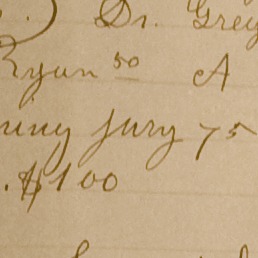 Dr. Grey
Ryan 50 A
uiny jury 75
. $1 00